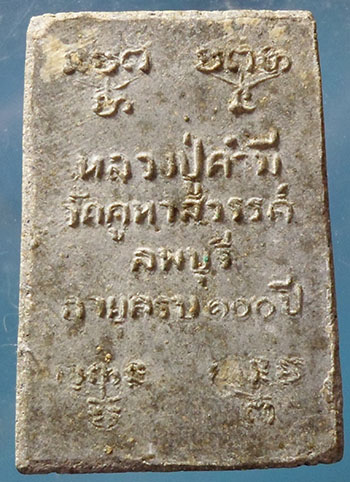 หลวงปู่คำมี
วัดคูหาสวรรค์
ลพบุรี
อายุครบ ๑๐๐ ปี